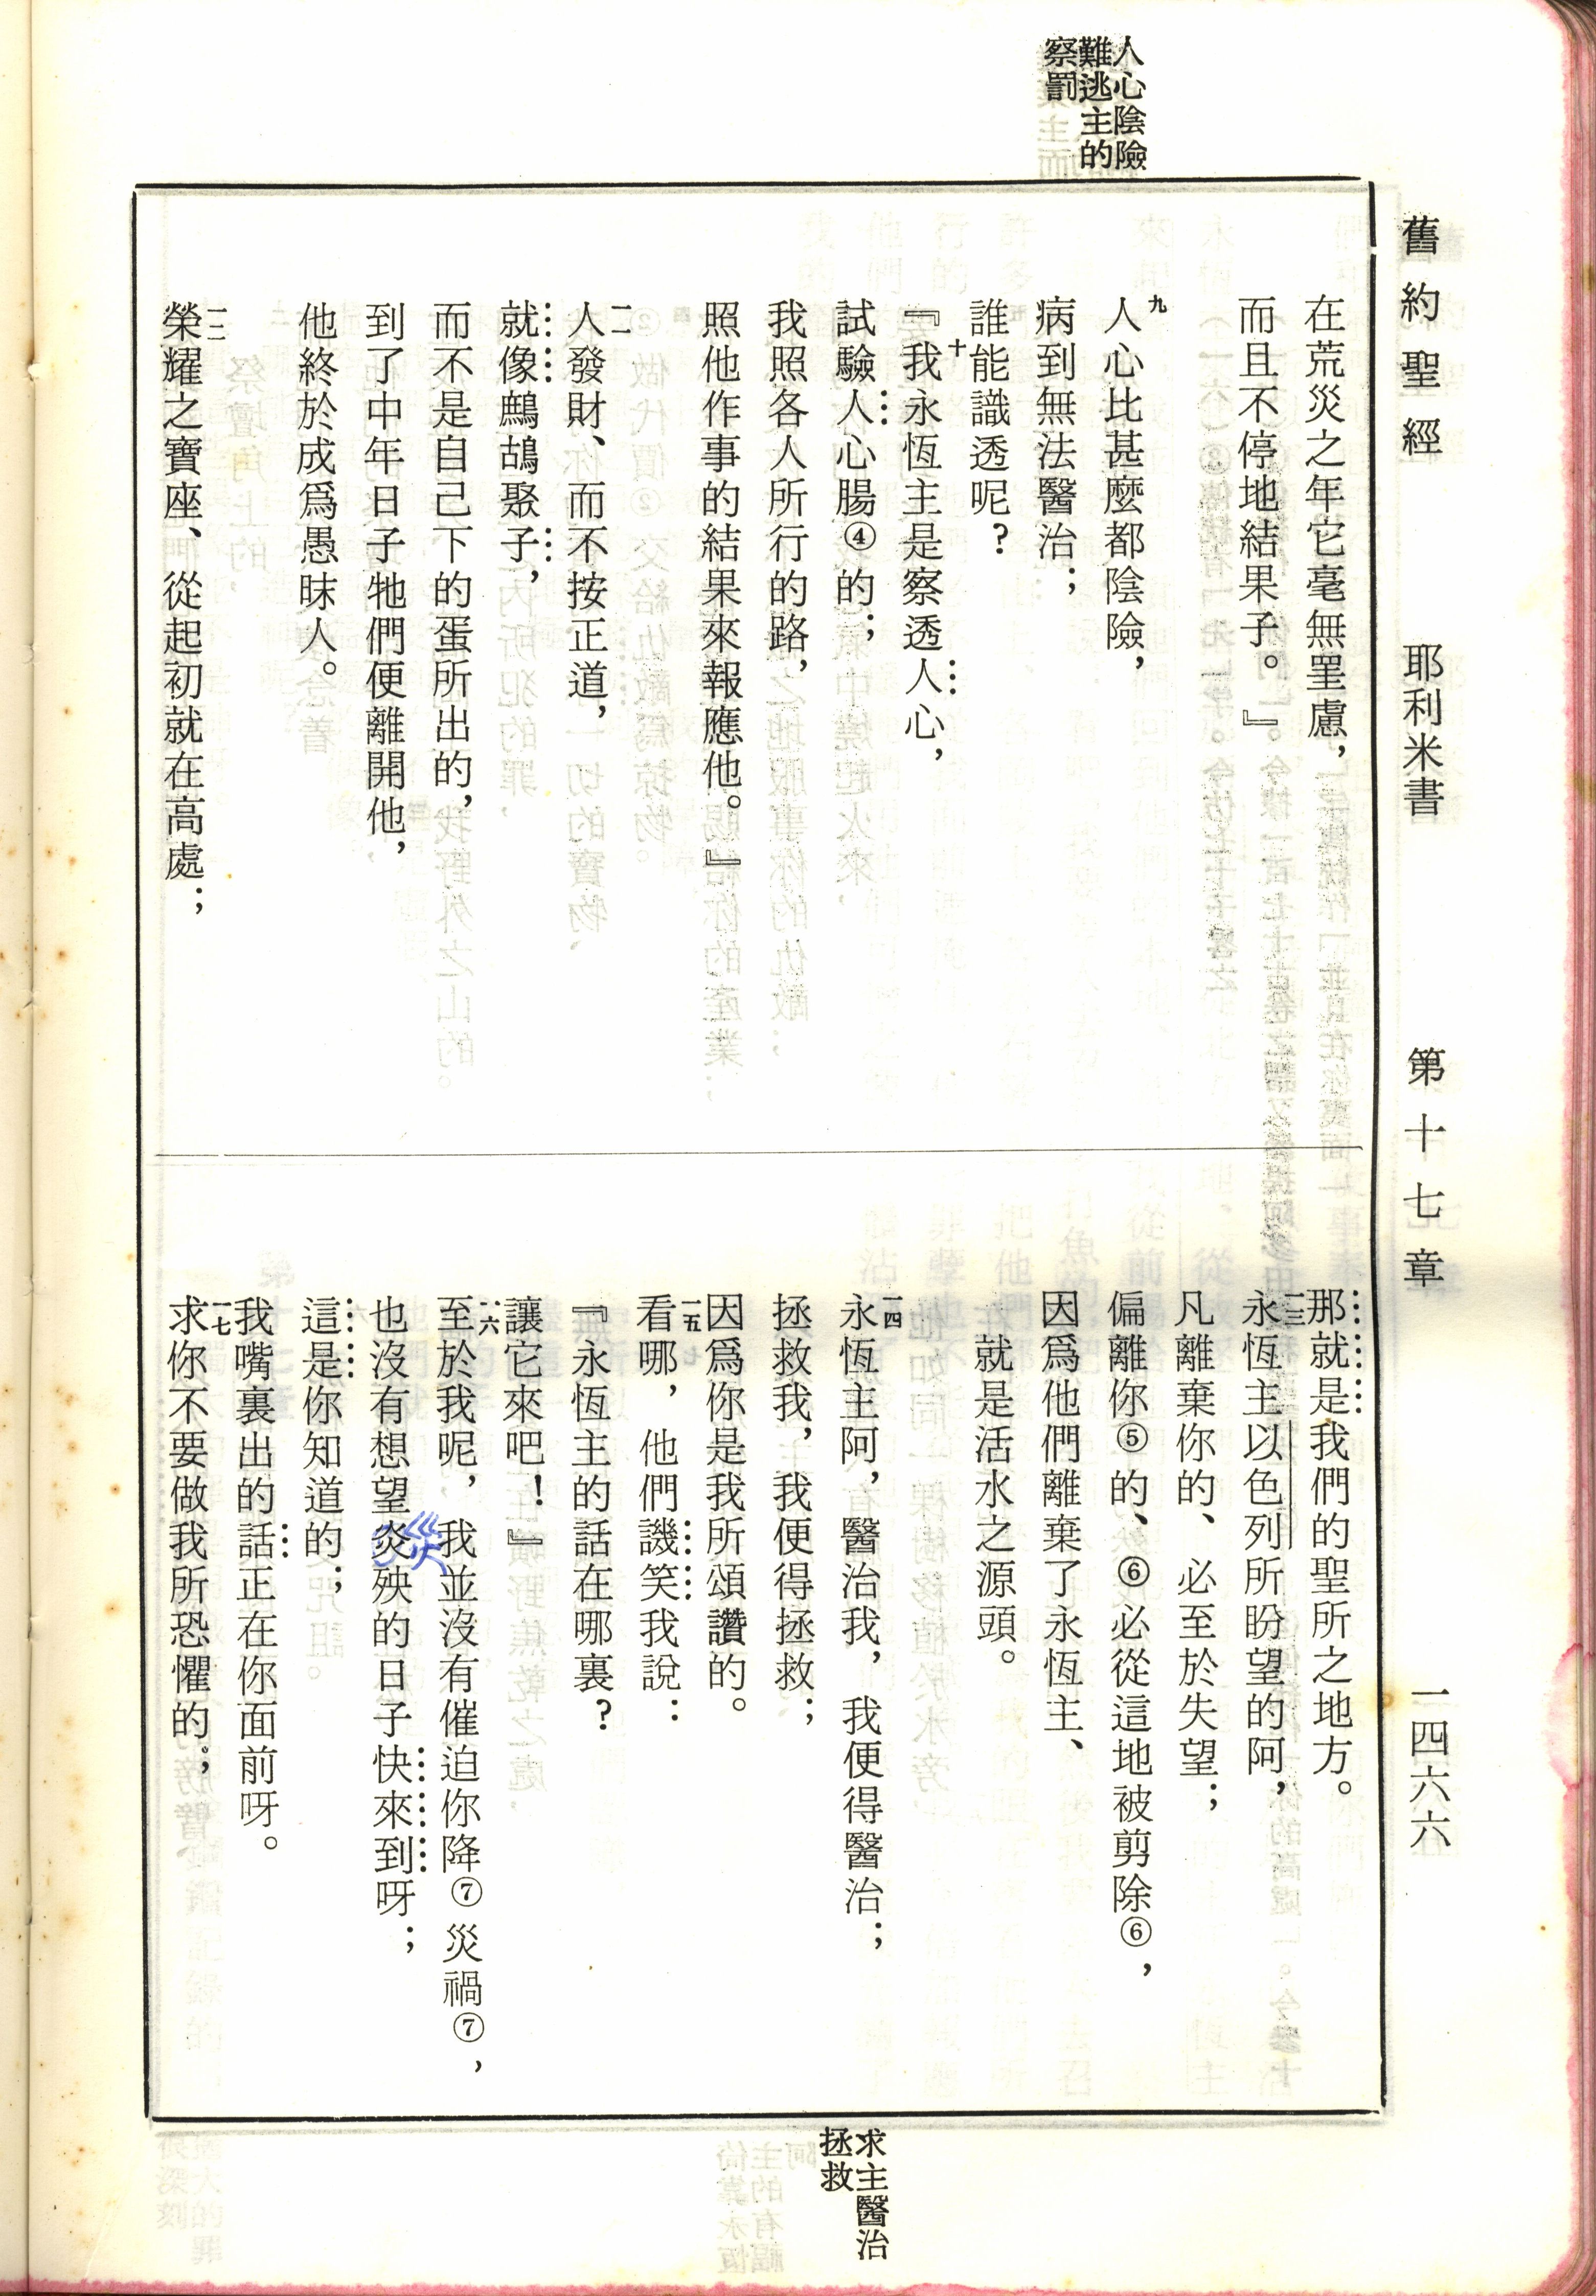 舊約聖經　耶利米書　第十七章　一四六六
人心陰險
難逃主的
察罰
在荒災之年它毫無罣慮，
而且不停地結果子。』
九人心比甚麼都陰險，
病到無法醫治；
誰能識透呢？
十『我永恆主是察透人心，
試驗人心腸④的；
我照各人所行的路，
照他作事的結果來報應他。』
一一人發財、而不按正道，
就像鷓鴣聚子，
而不是自己下的蛋所出的，
到了中年日子牠們便離開他，
他終於成爲愚昧人。
一二榮耀之寶座、從起初就在高處；
那就是我們的聖所之地方。
一三永恆主以色列所盼望的阿，
凡離棄你的、必至於失望；
偏離你⑤的、⑥必從這地被剪除⑥，
因爲他們離棄了永恆主、
就是活水之源頭。
一四永恆主阿，醫治我，我便得醫治；
拯救我，我便得拯救；
因爲你是我所頌讚的。
一五看哪，他們譏笑我說：
『永恆主的話在哪裏？
讓它來吧！』
一六至於我呢，我並沒有催迫你降⑦災禍⑦，
也沒有想望炎殃的日子快來到呀；
災
這是你知道的；
我嘴裏出的話正在你面前呀。
一七求你不要做我所恐懼的；
求主醫治
拯救